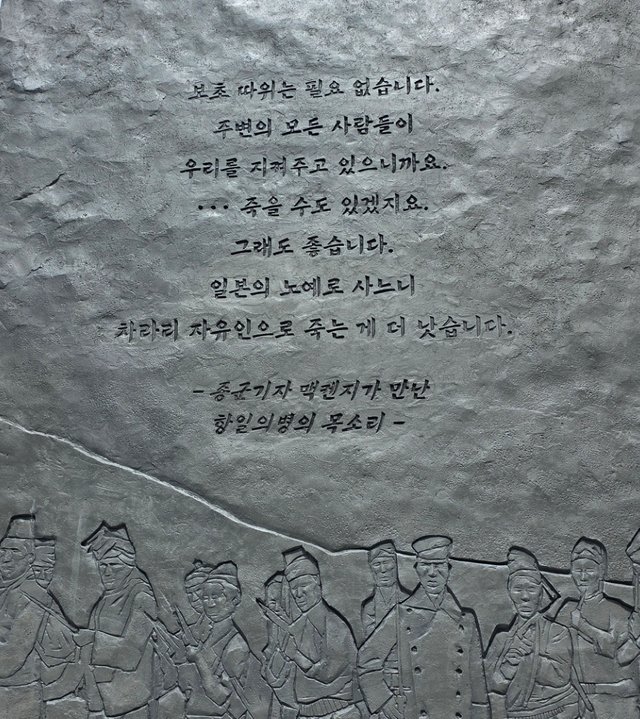 보초 따위는 필요 없습니다.
주변의 모든 사람들이
우리를 지켜주고 있으니까요.
··· 죽을 수도 있겠지요.
그래도 좋습니다.
일본의 노예로 사느니
차라리 자유인으로 죽는 게 더 낫습니다.
- 종군기자 맥켄지가 만난
항일의병의 목소리 -